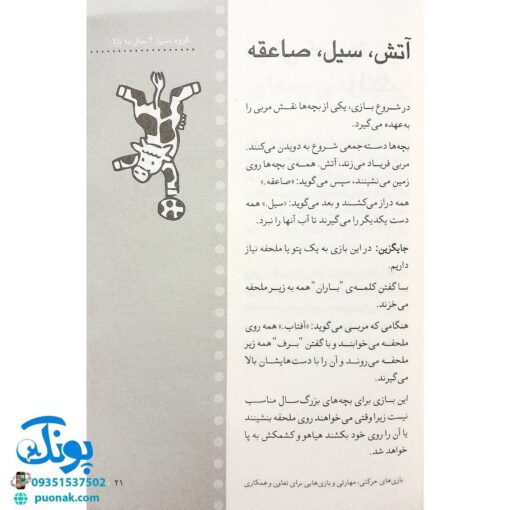 گروه سنی: ۴ سال به بالا
آتش، سیل، صاعقه
در شروع بازی، یکی از بچه‌ها نقش مربی را
به‌عهده می‌گیرد.
بچه‌ها دسته‌جمعی شروع به دویدن می‌کنند.
مربی فریاد می‌زند، آتش. همه‌ی بچه‌ها روی
زمین می‌نشینند، سپس می‌گوید: «صاعقه.»
همه دراز می‌کشند و بعد می‌گوید: «سیل.» همه
دست یکدیگر را می‌گیرند تا آب آنها را نبرد.
جایگزین: در این بازی به یک پتو یا ملحفه نیاز
داریم.
با گفتن کلمه‌ی "باران" همه به زیر ملحفه
می‌خزند.
هنگامی که مربی می‌گوید: «آفتاب.» همه روی
ملحفه می‌خوابند و با گفتن "برف" همه زیر
ملحفه می‌روند و آن را با دست‌هایشان بالا
می‌گیرند.
این بازی برای بچه‌های بزرگ‌سال مناسب
نیست زیرا وقتی می‌خواهند روی ملحفه بنشینند
یا آن را روی خود بکشند هیاهو و کشمکش به پا
خواهد شد.
بازی‌های حرکتی، مهارتی و بازی‌هایی برای تعاون و همکاری
۲۱
پونک
09351537502
puonak.com